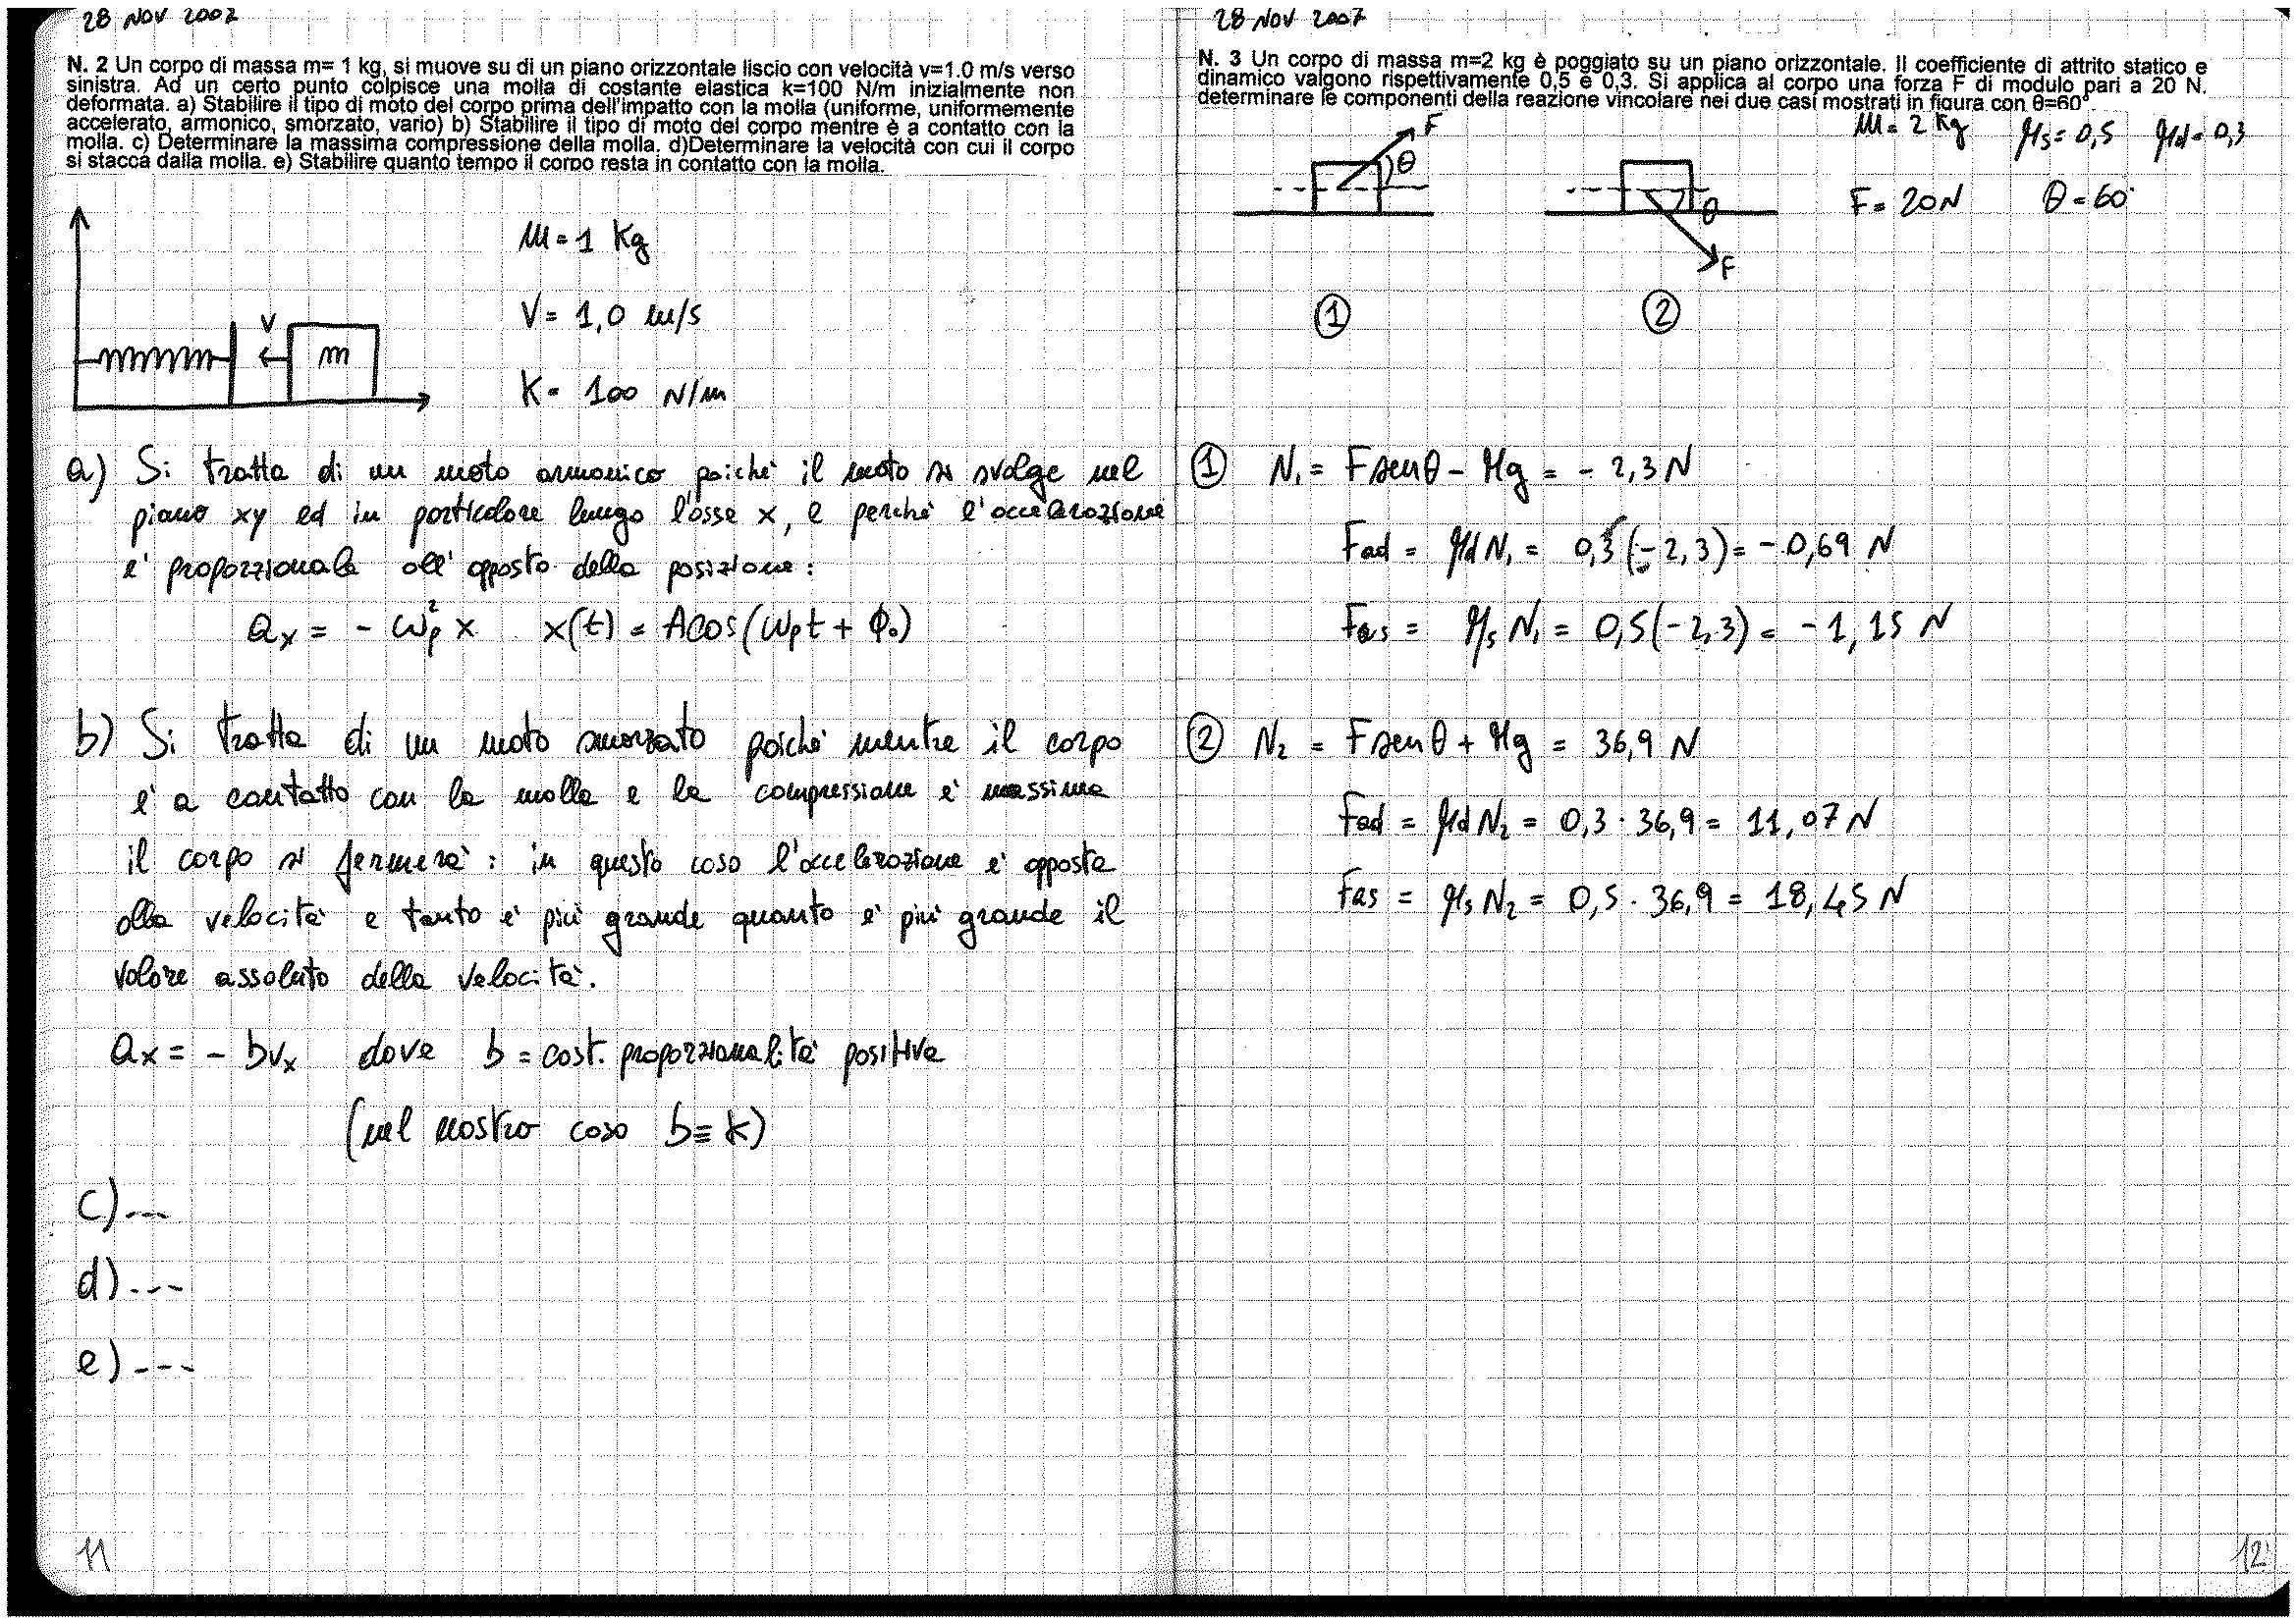 28 NOV 2007
N. 2 Un corpo di massa m= 1 kg, si muove su di un piano orizzontale liscio con velocità v=1.0 m/s verso
sinistra. Ad un certo punto colpisce una molla di costante elastica k=100 N/m inizialmente non
deformata. a) Stabilire il tipo di moto del corpo prima dell'impatto con la molla (uniforme, uniformemente
accelerato, armonico, smorzato, vario) b) Stabilire il tipo di moto del corpo mentre è a contatto con la
molla. c) Determinare la massima compressione della molla. d)Determinare la velocità con cui il corpo
si stacca dalla molla. e) Stabilire quanto tempo il corpo resta in contatto con la molla.
m = 1 Kg
V = 1,0 m/s
K = 100 N/m
V
m
a) Si tratta di un moto armonico poiché il moto si svolge nel
piano xy ed in particolare lungo l'asse x, e perché l'accelerazione
e' proporzionale all'opposto della posizione:
ax = - ωp² x x(t) = A cos(ωpt + Φ0)
b) Si tratta di un moto smorzato poiché mentre il corpo
e' a contatto con la molla e la compressione e' massima
il corpo si fermera': in questo caso l'accelerazione e' opposta
alla velocita' e tanto e' piu' grande quanto e' piu' grande il
valore assoluto della velocita'.
ax = - bvx dove b = cost. proporzionalita' positiva
(nel nostro caso b ≡ k)
c) ---
d) ---
e) ---
11
28 NOV 2007
N. 3 Un corpo di massa m=2 kg è poggiato su un piano orizzontale. Il coefficiente di attrito statico e
dinamico valgono rispettivamente 0,5 e 0,3. Si applica al corpo una forza F di modulo pari a 20 N.
determinare le componenti della reazione vincolare nei due casi mostrati in figura con θ=60°.
m = 2 Kg μs = 0,5 μd = 0,3
F = 20N θ = 60°
F
θ
θ
F
① ②
① N1 = F senθ - Mg = - 2,3 N
Fad = μd N1 = 0,3 (-2,3) = - 0,69 N
Fas = μs N1 = 0,5 (-2,3) = - 1,15 N
② N2 = F senθ + Mg = 36,9 N
Fad = μd N2 = 0,3 · 36,9 = 11,07 N
Fas = μs N2 = 0,5 · 36,9 = 18,45 N
12